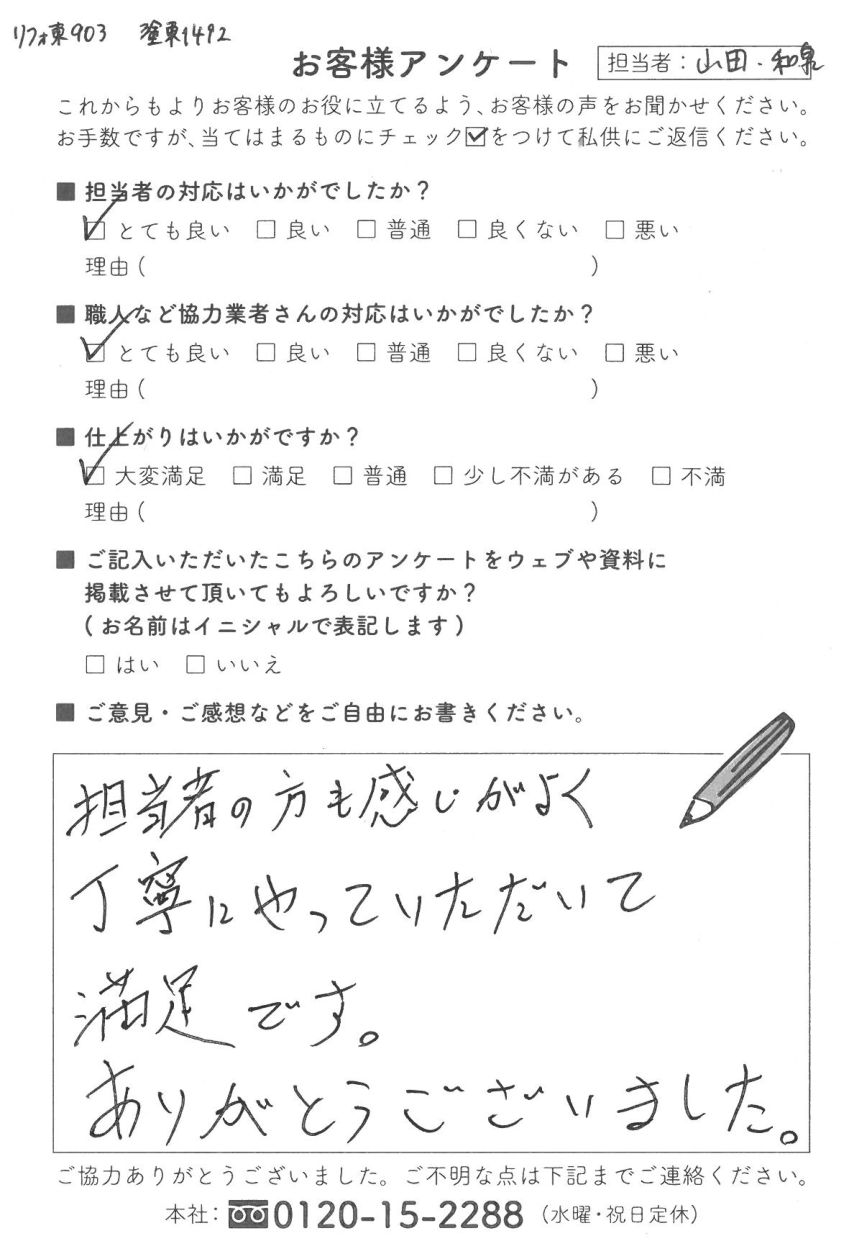 リフォ東903 塗東1492
お客様アンケート 担当者：山田・和泉
これからもよりお客様のお役に立てるよう、お客様の声をお聞かせください。
お手数ですが、当てはまるものにチェック☑をつけて私供にご返信ください。
■ 担当者の対応はいかがでしたか？
☑ とても良い □ 良い □ 普通 □ 良くない □ 悪い
理由（ ）
■ 職人など協力業者さんの対応はいかがでしたか？
☑ とても良い □ 良い □ 普通 □ 良くない □ 悪い
理由（ ）
■ 仕上がりはいかがですか？
☑ 大変満足 □ 満足 □ 普通 □ 少し不満がある □ 不満
理由（ ）
■ ご記入いただいたこちらのアンケートをウェブや資料に
掲載させて頂いてもよろしいですか？
（お名前はイニシャルで表記します）
□ はい □ いいえ
■ ご意見・ご感想などをご自由にお書きください。
担当者の方も感じがよく
丁寧にやっていただいて
満足です。
ありがとうございました。
ご協力ありがとうございました。ご不明な点は下記までご連絡ください。
本社：0120-15-2288（水曜・祝日定休）